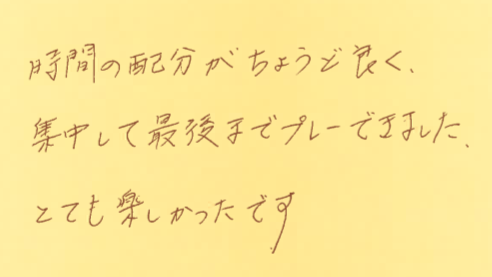 時間の配分がちょうど良く、
集中して最後までプレーできました、
とても楽しかったです